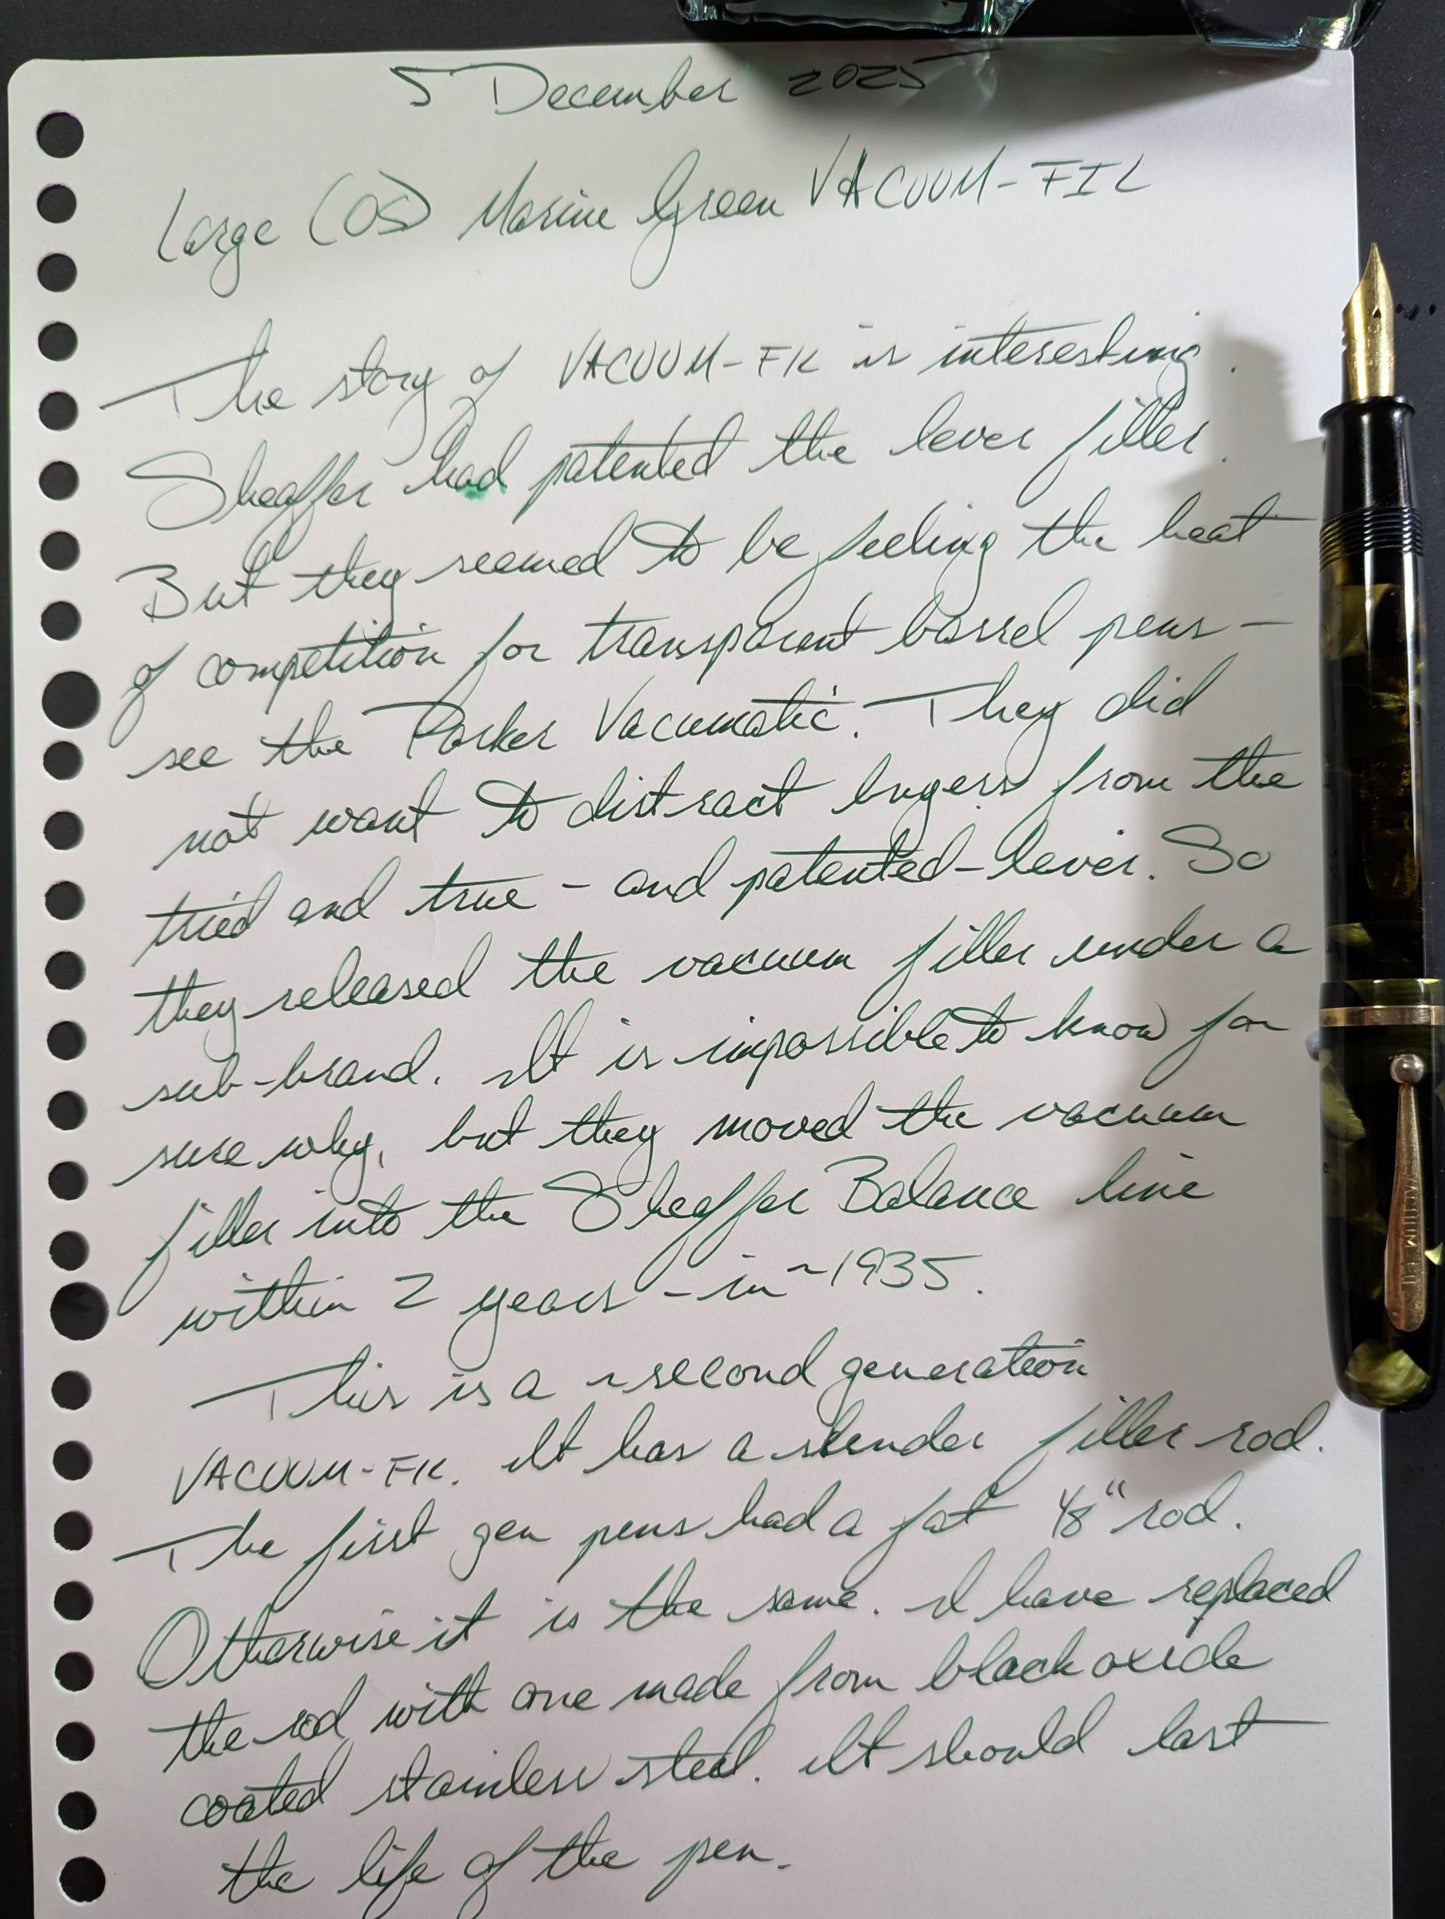 5 December 2025
Large (OS) Marine Green VACUUM-FIL
The story of VACUUM-FIL is interesting.
Sheaffer had patented the lever filler.
But they seemed to be feeling the heat
of competition for transparent barrel pens -
see the Parker Vacumatic. They did
not want to distract buyers from the
tried and true - and patented - lever. So
they released the vacuum filler under a
sub-brand. It is impossible to know for
sure why, but they moved the vacuum
filler into the Sheaffer Balance line
within 2 years - in ~1935.
This is a second generation
VACUUM-FIL. It has a slender filler rod.
The first gen pens had a fat 1/8" rod.
Otherwise it is the same. I have replaced
the rod with one made from black oxide
coated stainless steel. It should last
the life of the pen.
VACUUM FIL